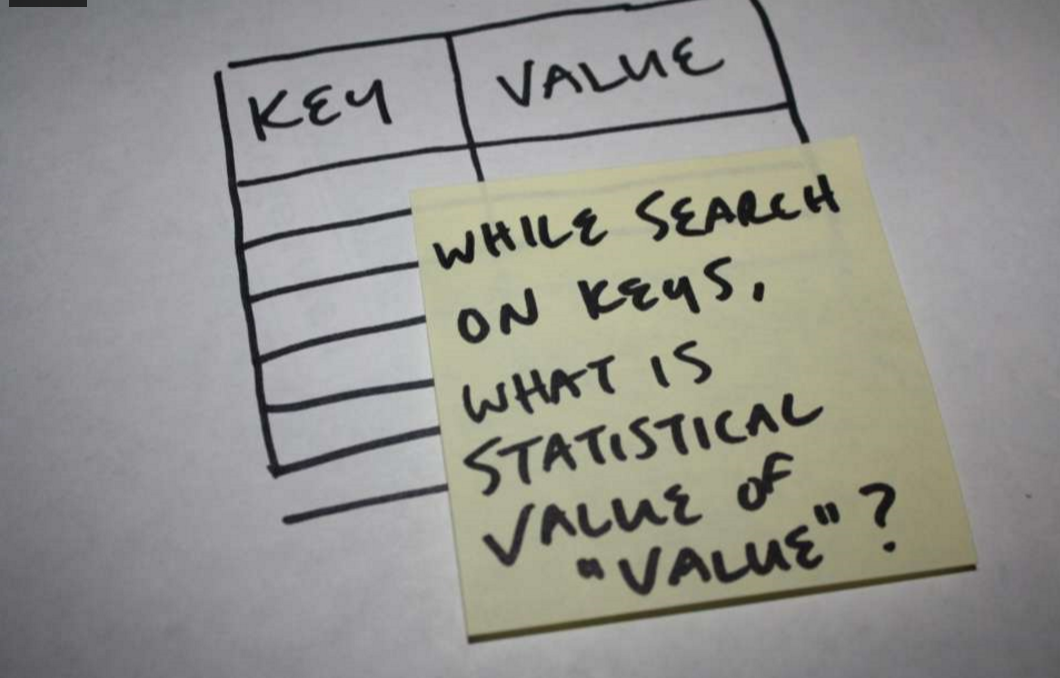 KEY VALUE
WHILE SEARCH
ON KEYS,
WHAT IS
STATISTICAL
VALUE OF
"VALUE"?